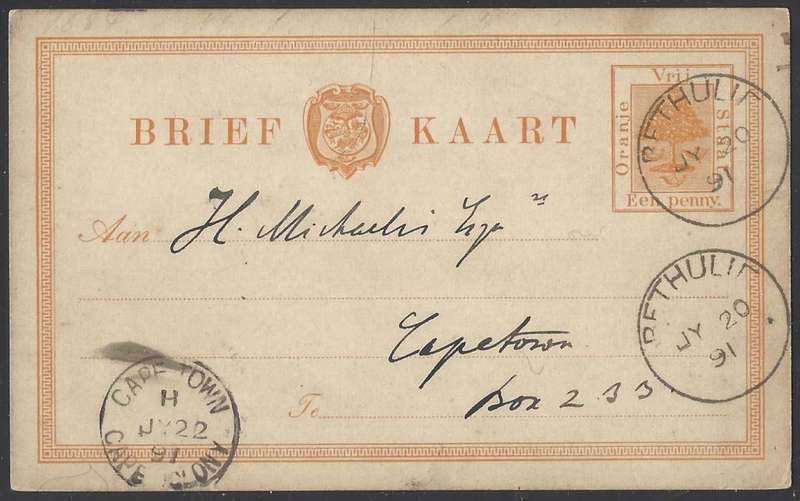 BRIEF KAART
Vrij
Oranje
Staat
Een penny.
BETHULIE
JY 20
91
Aan H. Michaelis Esqr
BETHULIE
JY 20
91
Capetown
To Box 233
CAPE TOWN
H
JY 22
91
CAPE COLONY